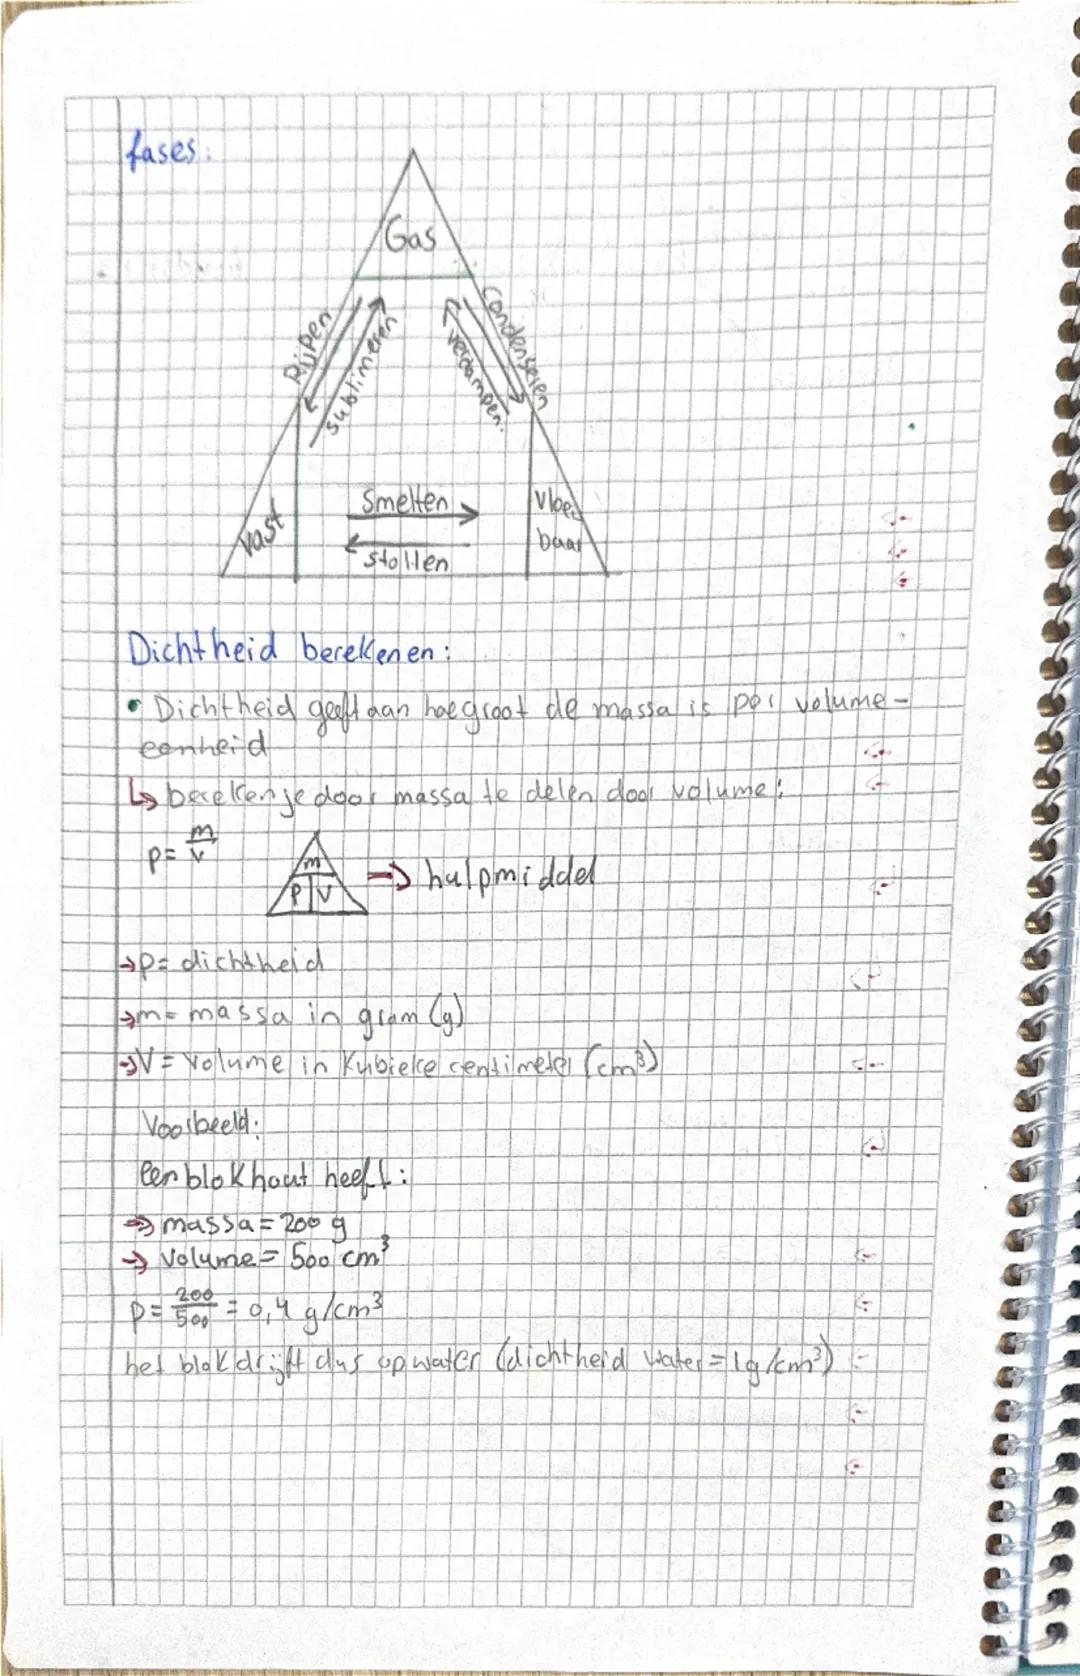 fases:
Gas
Rijpen
sublimeren
Condenseren
verdampen.
Smelten
stollen
vast
vloei
baar
Dichtheid berekenen:
• Dichtheid geeft aan hoe groot de massa is per volume-
eenheid
↳ bereken je door massa te delen door volume:
p = m/v
m
p | V
⇒ hulpmiddel
→ p = dichtheid
→ m = massa in gram (g)
→ V = volume in Kubieke centimeter (cm³)
Voorbeeld:
Een blok hout heeft:
⇒ massa = 200 g
→ volume = 500 cm³
p = 200/500 = 0,4 g/cm³
het blok drijft dus op water (dichtheid water = 1g/cm³)